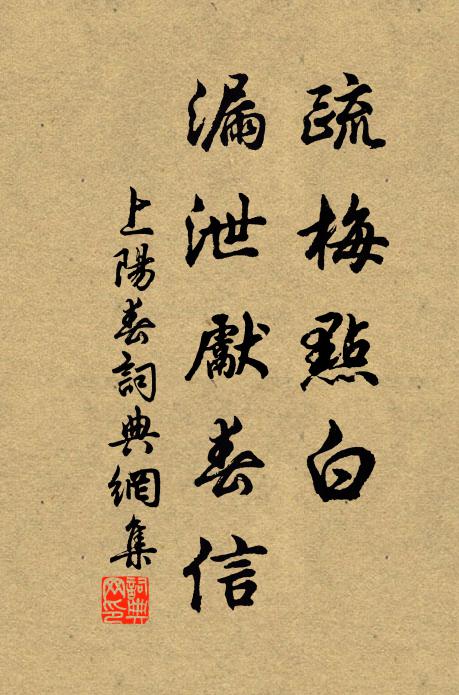 疏梅點白
漏泄獻春信
上陽春詞典網集
詞典
网印